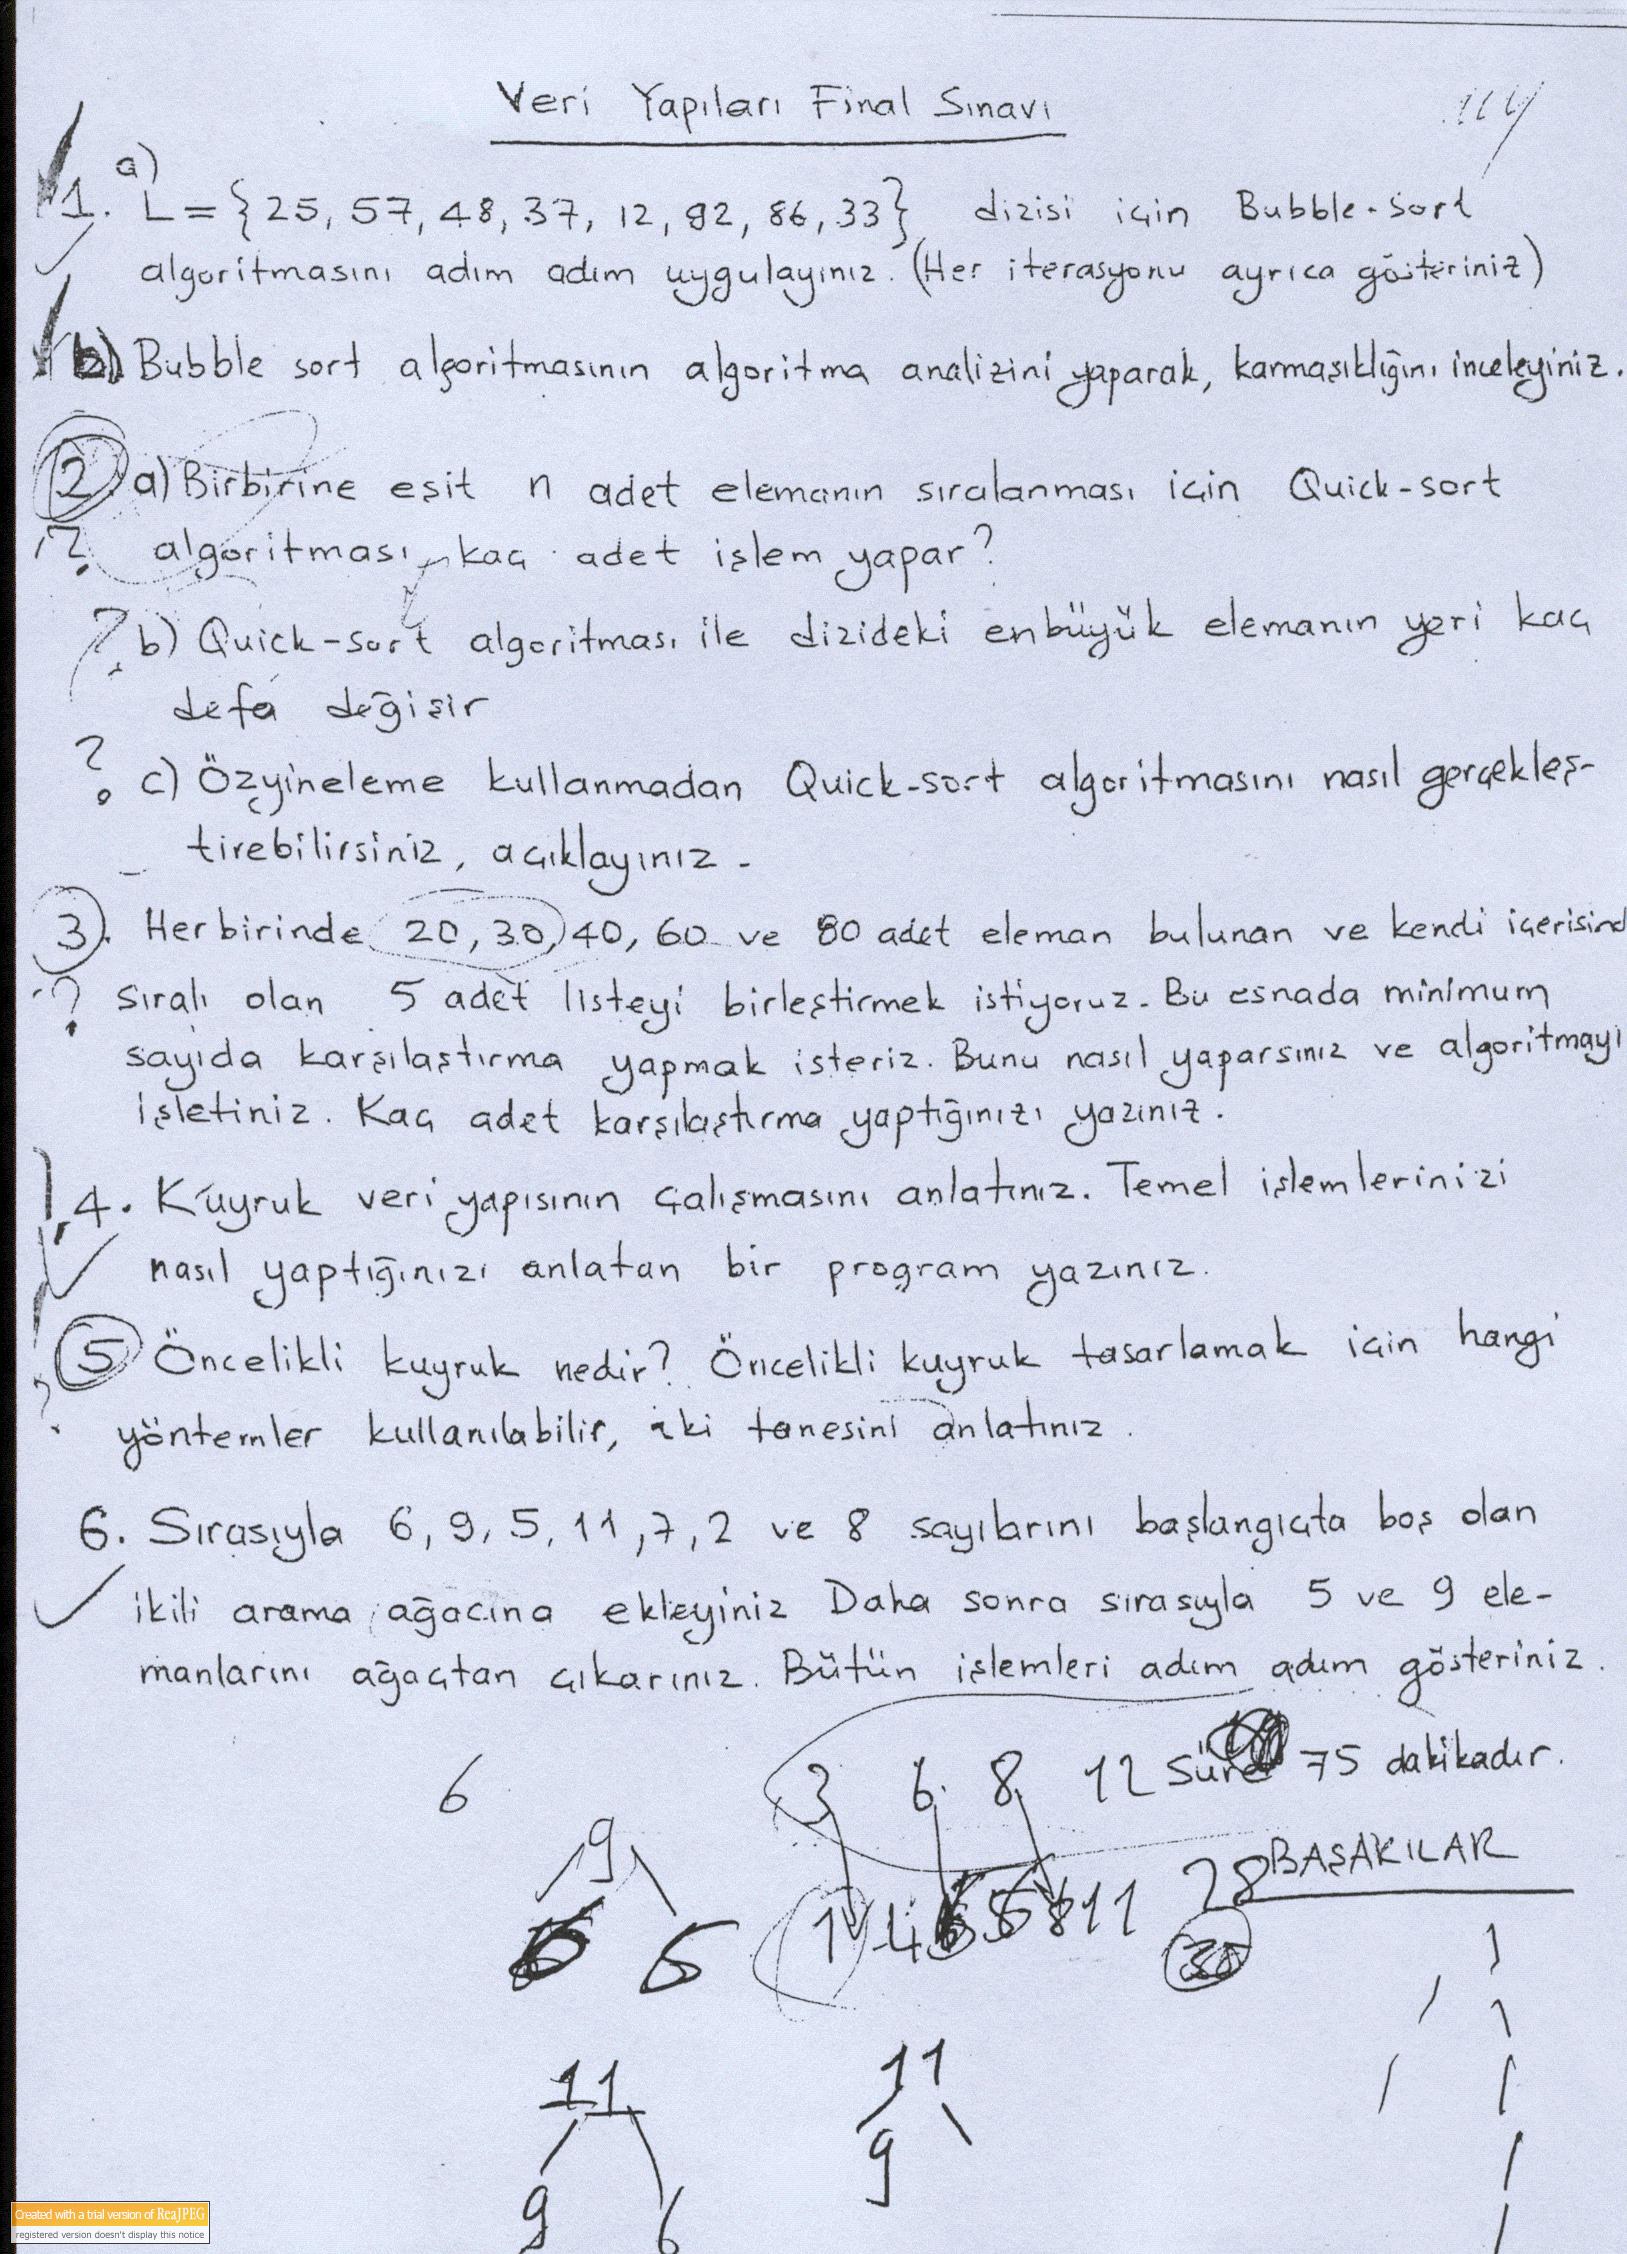 Veri Yapıları Final Sınavı
a)
1. L = {25, 57, 48, 37, 12, 92, 86, 33} dizisi için Bubble-sort
algoritmasını adım adım uygulayınız. (Her iterasyonu ayrıca gösteriniz)
b) Bubble sort algoritmasının algoritma analizini yaparak, karmaşıklığını inceleyiniz.
2. a) Birbirine eşit n adet elemanın sıralanması için Quick-sort
? algoritması kaç adet işlem yapar?
? b) Quick-sort algoritması ile dizideki enbüyük elemanın yeri kaç
defa değişir
? c) Özyineleme kullanmadan Quick-sort algoritmasını nasıl gerçekleş-
tirebilirsiniz, açıklayınız.
3. Herbirinde 20, 30, 40, 60 ve 80 adet eleman bulunan ve kendi içerisind
? sıralı olan 5 adet listeyi birleştirmek istiyoruz. Bu esnada minimum
sayıda karşılaştırma yapmak isteriz. Bunu nasıl yaparsınız ve algoritmayı
işletiniz. Kaç adet karşılaştırma yaptığınızı yazınız.
4. Kuyruk veri yapısının çalışmasını anlatınız. Temel işlemlerinizi
nasıl yaptığınızı anlatan bir program yazınız.
5 Öncelikli kuyruk nedir? Öncelikli kuyruk tasarlamak için hangi
? yöntemler kullanılabilir, iki tanesini anlatınız.
6. Sırasıyla 6, 9, 5, 11, 7, 2 ve 8 sayılarını başlangıçta boş olan
ikili arama ağacına ekleyiniz Daha sonra sırasıyla 5 ve 9 ele-
manlarını ağaçtan çıkarınız. Bütün işlemleri adım adım gösteriniz.
6 3 6 8 12 Süre 75 dakikadır.
9 28 BAŞAKILAR
6 5 1 4 8 11
11 11
9
9 6
Created with a trial version of ReaJPEG
registered version doesn't display this notice